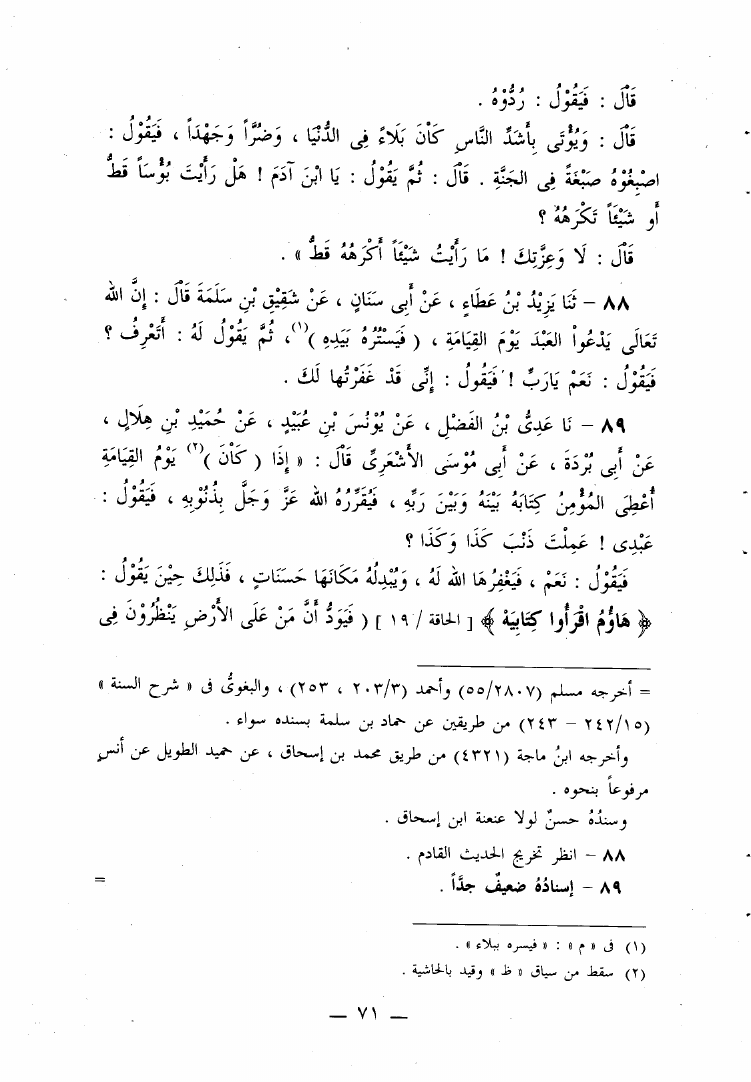 قَالَ : فَيَقُوْلُ : رُدُّوْهُ .
قَالَ : وَيُؤْتَى بِأَشَدِّ النَّاسِ كَاْنَ بَلَاءً فِى الدُّنْيَا ، وَضُرًّا وَجَهْدَاً ، فَيَقُوْلُ :
اصْبِغُوْهُ صَبْغَةً فِى الجَنَّةِ . قَالَ : ثُمَّ يَقُوْلُ : يَا ابْنَ آدَمَ ! هَلْ رَأَيْتَ بُؤْسَاً قَطُّ
أَو شَيْئَاً تَكْرَهُهُ ؟
قَالَ : لَا وَعِزَّتِكَ ! مَا رَأَيْتُ شَيْئَاً أَكْرَهُهُ قَطُّ » .
٨٨ – ثَنَا يَزِيْدُ بْنُ عَطَاءٍ ، عَنْ أَبِى سَنَانٍ ، عَنْ شَقِيْقِ بْنِ سَلَمَةَ قَالَ : إِنَّ اللهَ
تَعَالَى يَدْعُواْ العَبْدَ يَوْمَ القِيَامَةِ ، ( فَيَسْتُرُهُ بِيَدِهِ )(١)، ثُمَّ يَقُوْلُ لَهُ : أَتَعْرِفُ ؟
فَيَقُوْلُ : نَعَمْ يَارَبِّ ! فَيَقُولُ : إِنِّى قَدْ غَفَرْتُها لَكَ .
٨٩ – نَا عَدِىُّ بْنُ الفَضْلِ ، عَنْ يُوْنُسَ بْنِ عُبَيْدٍ ، عَنْ حُمَيْدِ بْنِ هِلَالٍ ،
عَنْ أَبِى بُرْدَةَ ، عَنْ أَبِى مُوْسَى الأَشْعَرِىِّ قَالَ : « إِذَا ( كَاْنَ )(٢) يَوْمُ القِيَامَةِ
أُعْطِىَ المُؤْمِنُ كِتَابَهُ بَيْنَهُ وَبَيْنَ رَبِّهِ ، فَيُقَرِّرُهُ الله عَزَّ وَجَلَّ بِذُنُوْبِهِ ، فَيَقُوْلُ :
عَبْدِى ! عَمِلْتَ ذَنْبَ كَذَا وَكَذَا ؟
فَيَقُوْلُ : نَعَمْ ، فَيَغْفِرُهَا الله لَهُ ، وَيُبْدِلُهُ مَكَانَهَا حَسَنَاتٍ ، فَذَلِكَ حِيْنَ يَقُوْلُ :
﴿ هَاؤُمُ اقْرَأُوا كِتَابِيَهْ ﴾ [ الحاقة / ١٩ ] ( فَيَوَدُّ أَنَّ مَنْ عَلَى الأَرْضِ يَنْظُرُوْنَ فِى
= أخرجه مسلم (٥٥/٢٨٠٧) وأحمد (٢٠٣/٣ ، ٢٥٣) ، والبغوىُّ فى « شرح السنة »
(٢٤٢/١٥ – ٢٤٣) من طريقين عن حماد بن سلمة بسنده سواء .
وأخرجه ابنُ ماجة (٤٣٢١) من طريق محمد بن إسحاق ، عن حميد الطويل عن أنسٍ
مرفوعاً بنحوه .
وسندُهُ حسنٌ لولا عنعنة ابن إسحاق .
٨٨ – انظر تخريج الحديث القادم .
٨٩ – إسنادُهُ ضعيفٌ جدَّاً . =
(١) فى « م » : « فيسره ببلاء » .
(٢) سقط من سياق « ظ » وقيد بالحاشية .
— ٧١ —